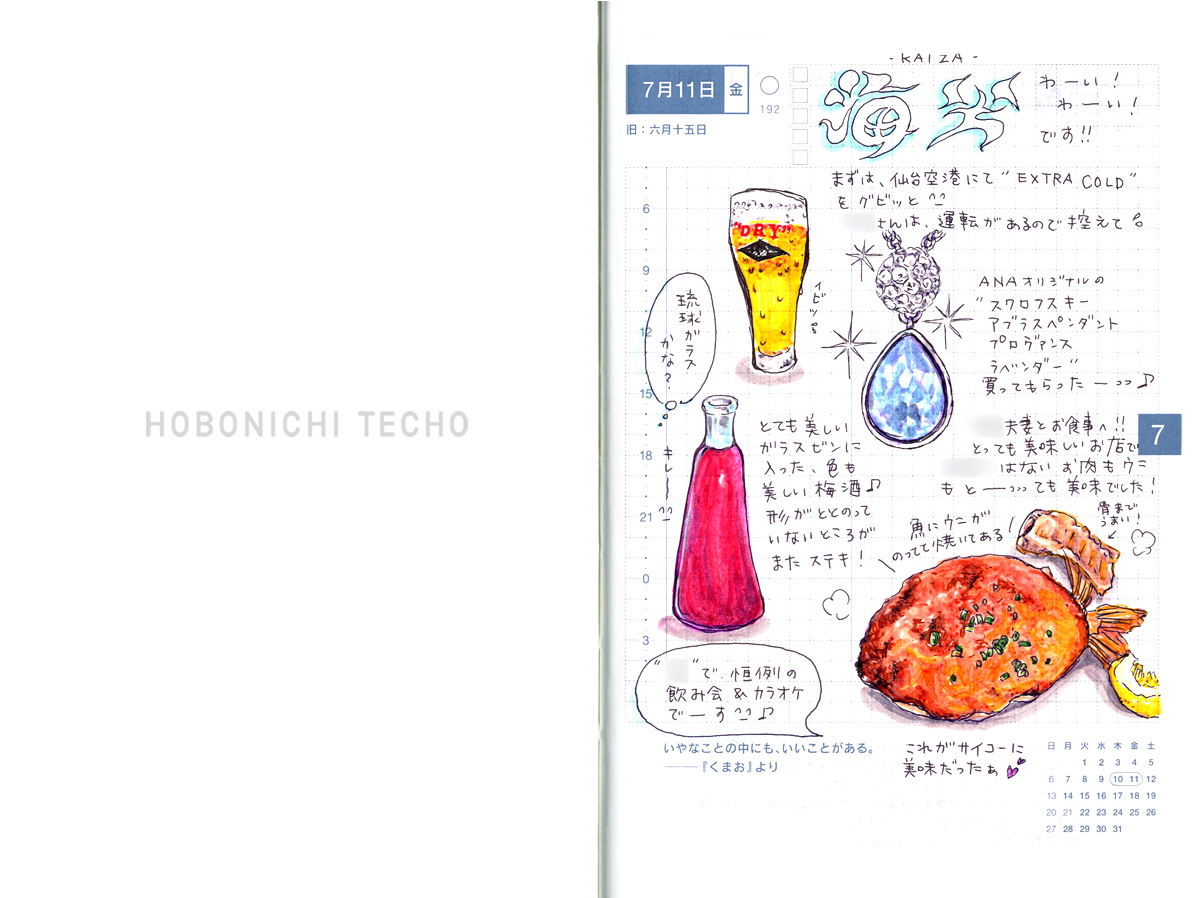 HOBONICHI TECHO
7月11日 金
192
旧：六月十五日
- KAIZA -
海
わーい！
わーい！
です!!
まずは、仙台空港にて"EXTRA COLD"
をグビッと
さんは、運転があるので控えて
"DRY"
イビツ
琉球ガラス
かな？
キレー
ANAオリジナルの
"スワロフスキー
アブラスペンダント
プロヴァンス
ラベンダー"
買ってもらったーッッ♪
とても美しい
ガラスビンに
入った、色も
美しい梅酒♪
形がととのって
いないところが
またステキ！
夫妻とお食事へ!!
とっても美味しいお店で
はない お肉もウニ
もとーッッッても美味でした！
骨まで
うまい！
魚にウニが
のってて焼いてある！
" "で、恒例の
飲み会&カラオケ
でーす♪
これがサイコーに
美味だったぁ
6
9
12
15
18
21
0
3
7
いやなことの中にも、いいことがある。
——『くまお』より
日 月 火 水 木 金 土
1 2 3 4 5
6 7 8 9 10 11 12
13 14 15 16 17 18 19
20 21 22 23 24 25 26
27 28 29 30 31